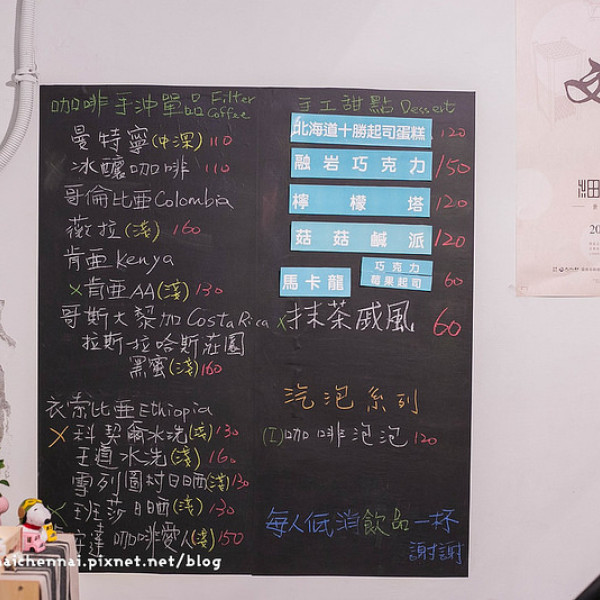 咖啡手沖單品 Filter Coffee
曼特寧(中深) 110
冰釀咖啡 110
哥倫比亞 Colombia
薇拉(淺) 160
肯亞 Kenya
x肯亞AA(淺) 130
哥斯大黎加 Costa Rica
拉斯拉哈斯莊園
黑蜜(淺) 160
衣索比亞 Ethiopia
x科契爾水洗(淺) 130
王道水洗(淺) 160
雪列圖村日晒(淺) 130
x班莎日晒(淺) 130
安達咖啡愛人(淺) 150
手工甜點 Dessert
北海道十勝起司蛋糕 120
融岩巧克力 150
檸檬塔 120
菇菇鹹派 120
馬卡龍 巧克力 莓果起司 60
x抹茶戚風 60
汽泡系列
(I)咖啡泡泡 120
每人低消飲品一杯
謝謝
細
20
naichennai.pixnet.net/blog